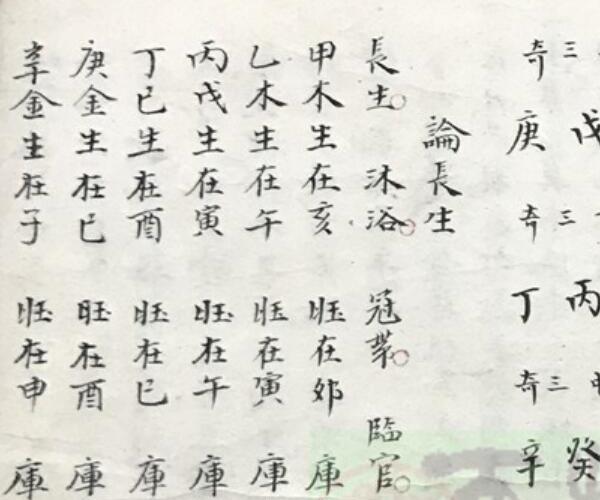 三 戊 三 丙 三 癸
奇 庚 奇 丁 奇 辛
論長生
長生。 沐浴。 冠帶。 臨官。
甲木生在亥 旺在卯 庫
乙木生在午 旺在寅 庫
丙戊生在寅 旺在午 庫
丁己生在酉 旺在巳 庫
庚金生在巳 旺在酉 庫
辛金生在子 旺在申 庫